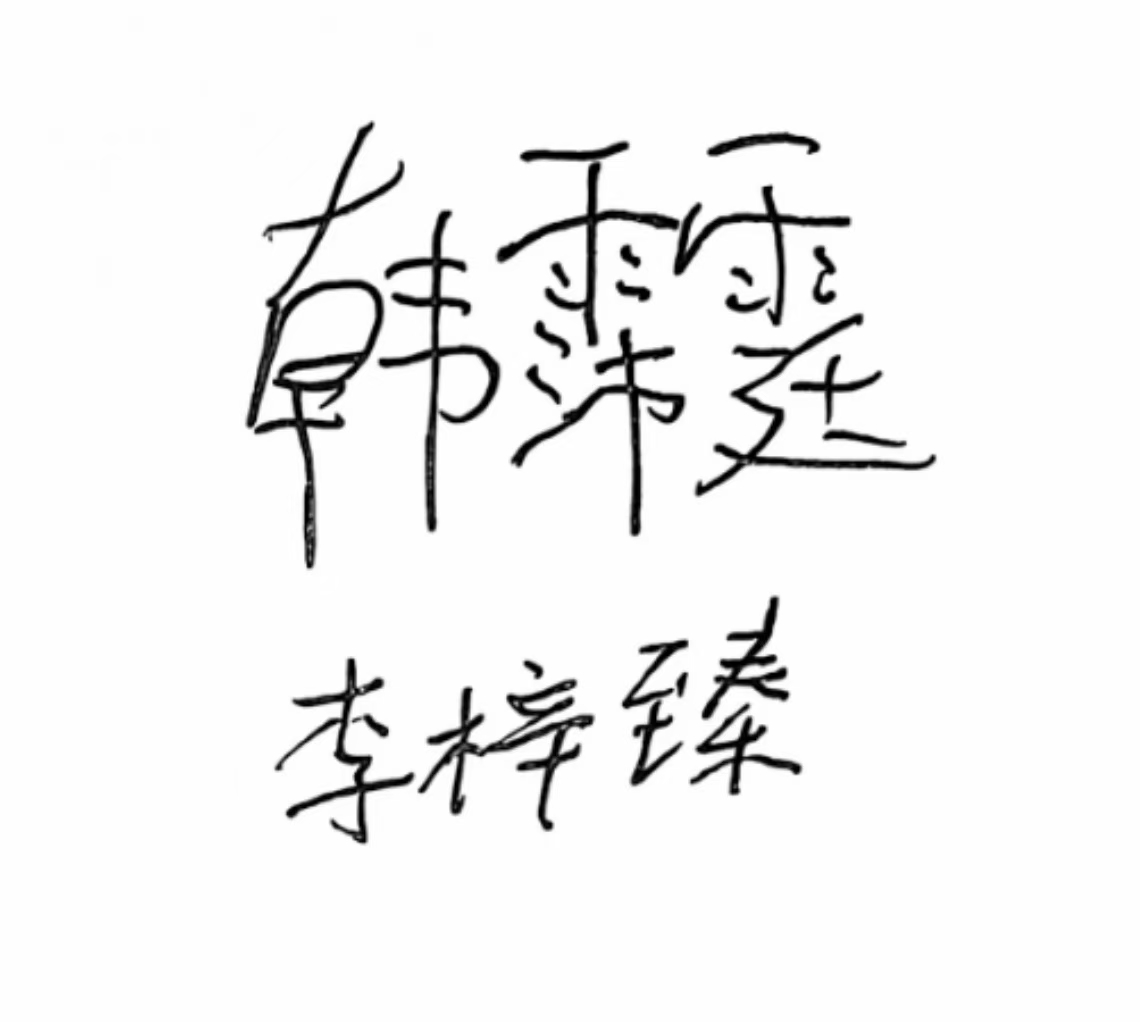 韩霈霆
李梓臻